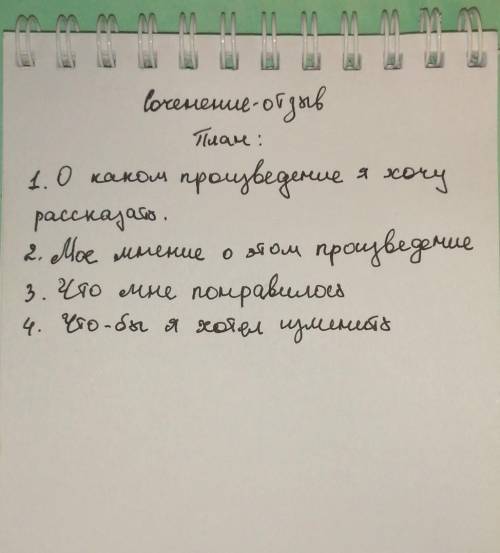 Соченение-отзыв
План:
1. О каком произведение я хочу
рассказать.
2. Мое мнение о этом произведение
3. Что мне понравилось
4. Что-бы я хотел изменить